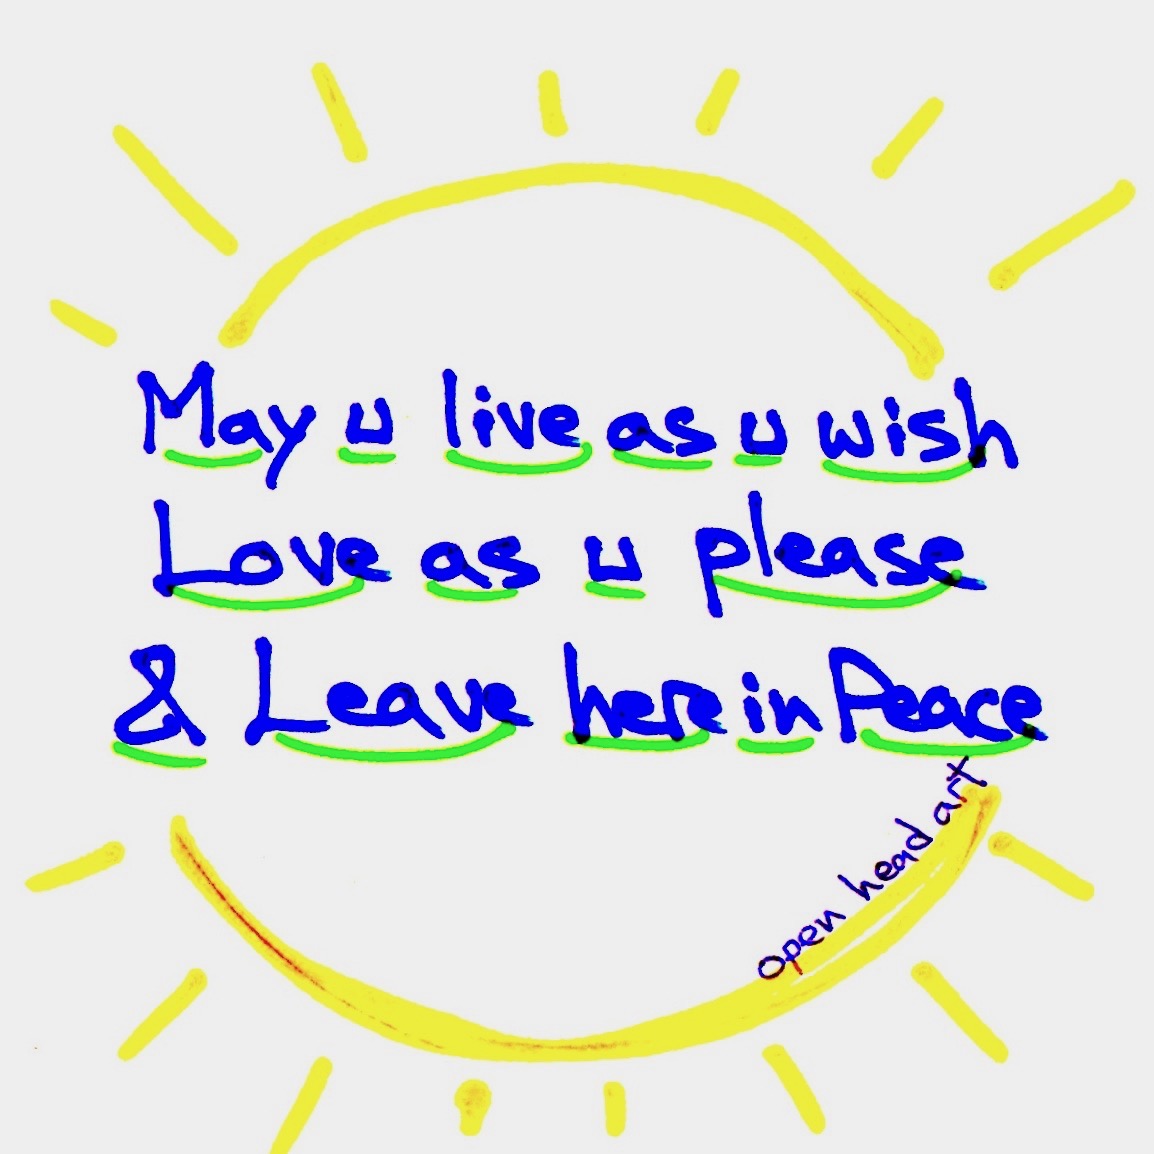 May u live as u wish
Love as u please
& Leave here in Peace
open head art